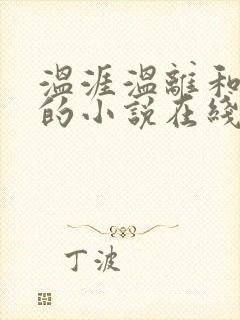 温涯温離和
的小説在綫
丁波